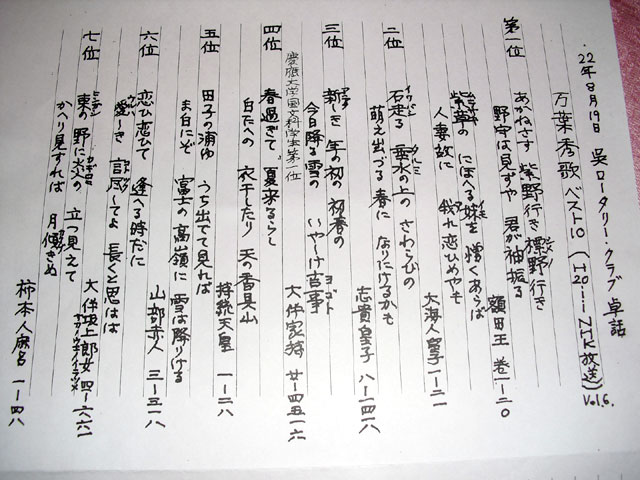 22年8月19日 呉ロータリー・クラブ 卓話
万葉秀歌ベスト10 (H20ーiiNHK放送) Vol.6.
第一位 あかねさす 紫野行き 標野行き
野守は見ずや 君が袖振る 額田王 巻1ー20
紫草の にほへる妹を 憎くあらば
人妻故に 我れ恋ひめやも 大海人皇子 1ー21
二位 石走る 垂水の上の さわらびの
萌え出づる 春に なりにけるかも 志貴皇子 八ー一四一八
三位 新しき 年の初の 初春の
今日降る雪の いやしけ吉事 大伴家持 廿ー四五一六
慶應大学国文科学生第一位
四位 春過ぎて 夏来るらし
白たへの 衣干したり 天の香具山 持統天皇 一ー二八
五位 田子の浦ゆ うち出でて見れば
ま白にぞ 富士の高嶺に 雪は降りける 山部赤人 三ー三一八
六位 恋ひ恋ひて 逢へる時だに
愛しき 言尽してよ 長くと思はば 大伴坂上郎女 四ー六六一
七位 東の 野に炎の 立つ見えて
かへり見すれば 月傾きぬ 柿本人麻呂 一ー四八